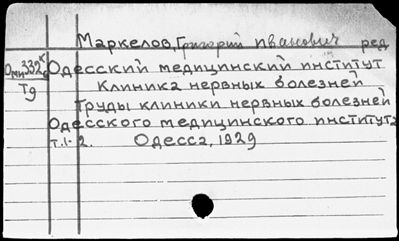 Маркелов, Григорий Иванович ред
332к Одесский медицинский институт
Т9 Клиника нервных болезней
Труды клиники нервных болезней
Одесского медицинского института
т.1-2. Одесса, 1929